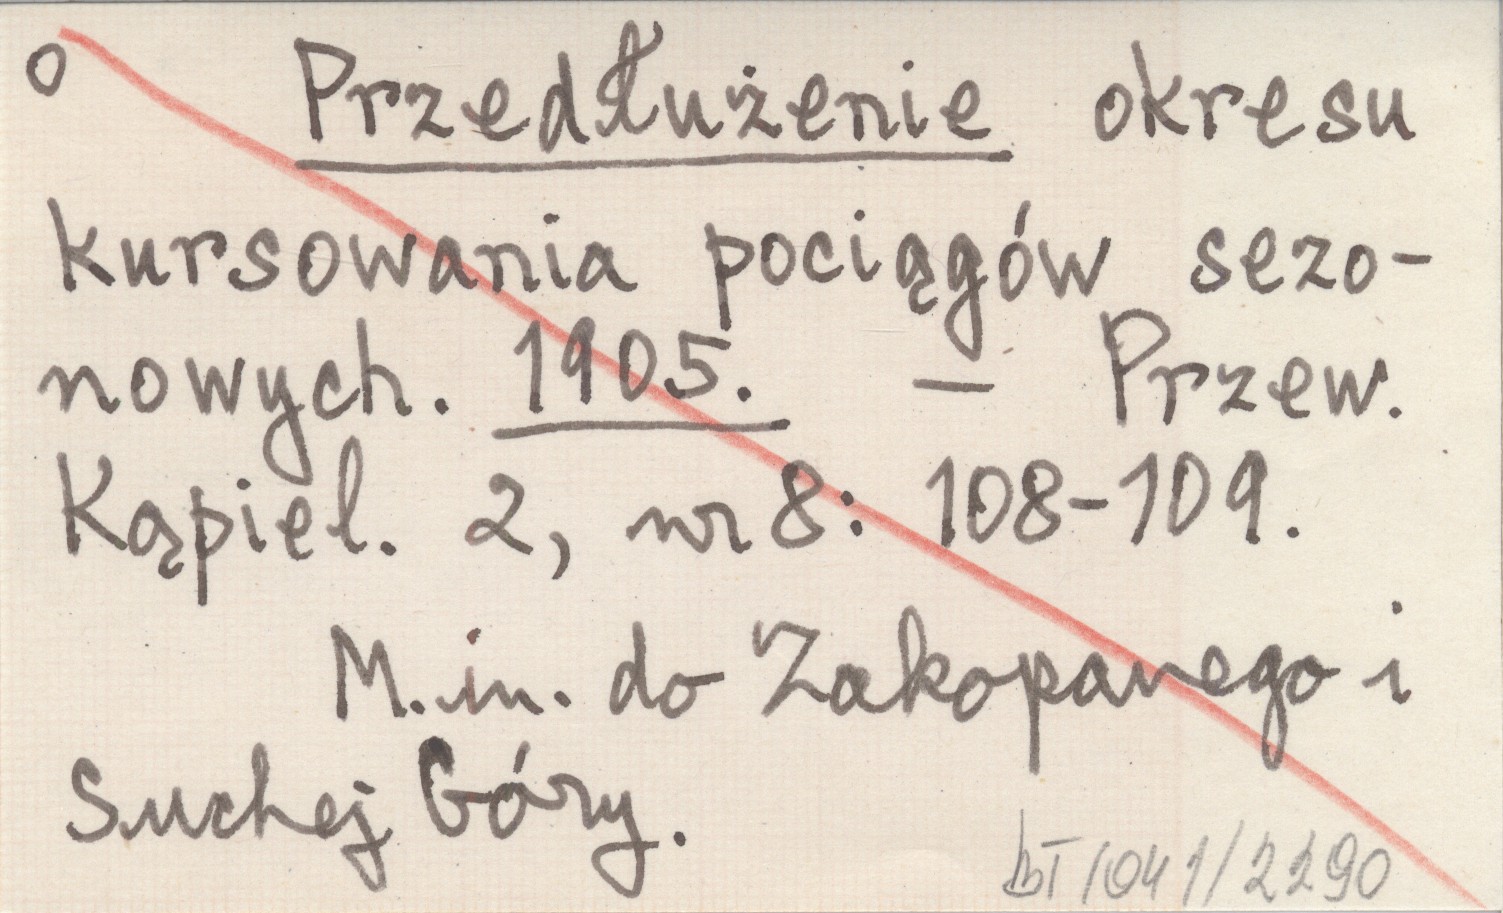 o Przedłużenie okresu
kursowania pociągów sezo-
nowych. 1905. — Przew.
Kąpiel. 2, nr 8: 108-109.
M. in. do Zakopanego i
Suchej Góry.
1041/2290